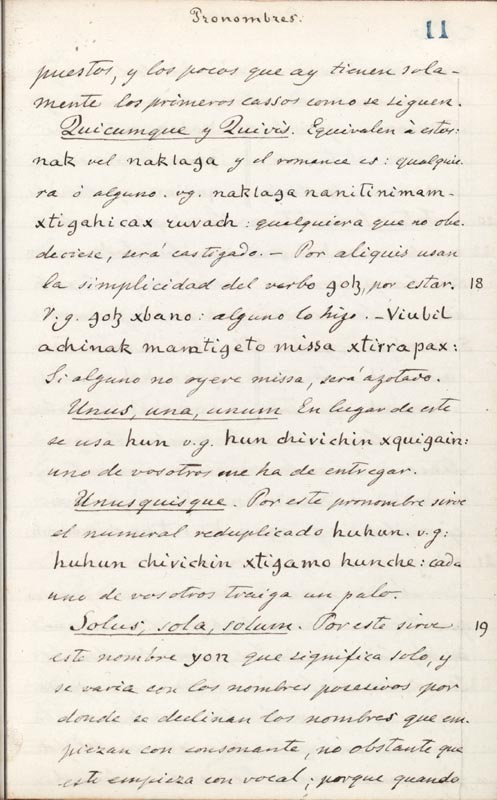 Pronombres.
11
puestos, y los pocos que ay tienen sola-
mente los primeros cassos como se siguen.
Quicumque y Quivis. Equivalen à estos:
nak vel naklaga y el romance es: qualquie-
ra ò alguno. vg. naklaga nanitinimam-
xtigahicax ruvach: qualquiera que no obe-
deciese, será castigado. — Por aliquis usan
la simplicidad del verbo goꜩ, por estar. 18
V.g. goꜩ xbano: alguno lo hizo. — Viubil
achinak maratigeto missa xtirrapax:
Si alguno no oyere missa, será azotado.
Unus, una, unum En lugar de este
se usa hun v.g. hun chivichin xquigain:
uno de vosotros me ha de entregar.
Unusquisque. Por este pronombre sirve
el numeral reduplicado huhun. v.g:
huhun chivichin xtigamo hunche: cada
uno de vosotros traiga un palo.
Solus, sola, solum. Por este sirve 19
este nombre yon que significa solo, y
se varia con los nombres posesivos por
donde se declinan los nombres que em-
piezan con consonante, no obstante que
este empieza con vocal; porque quando